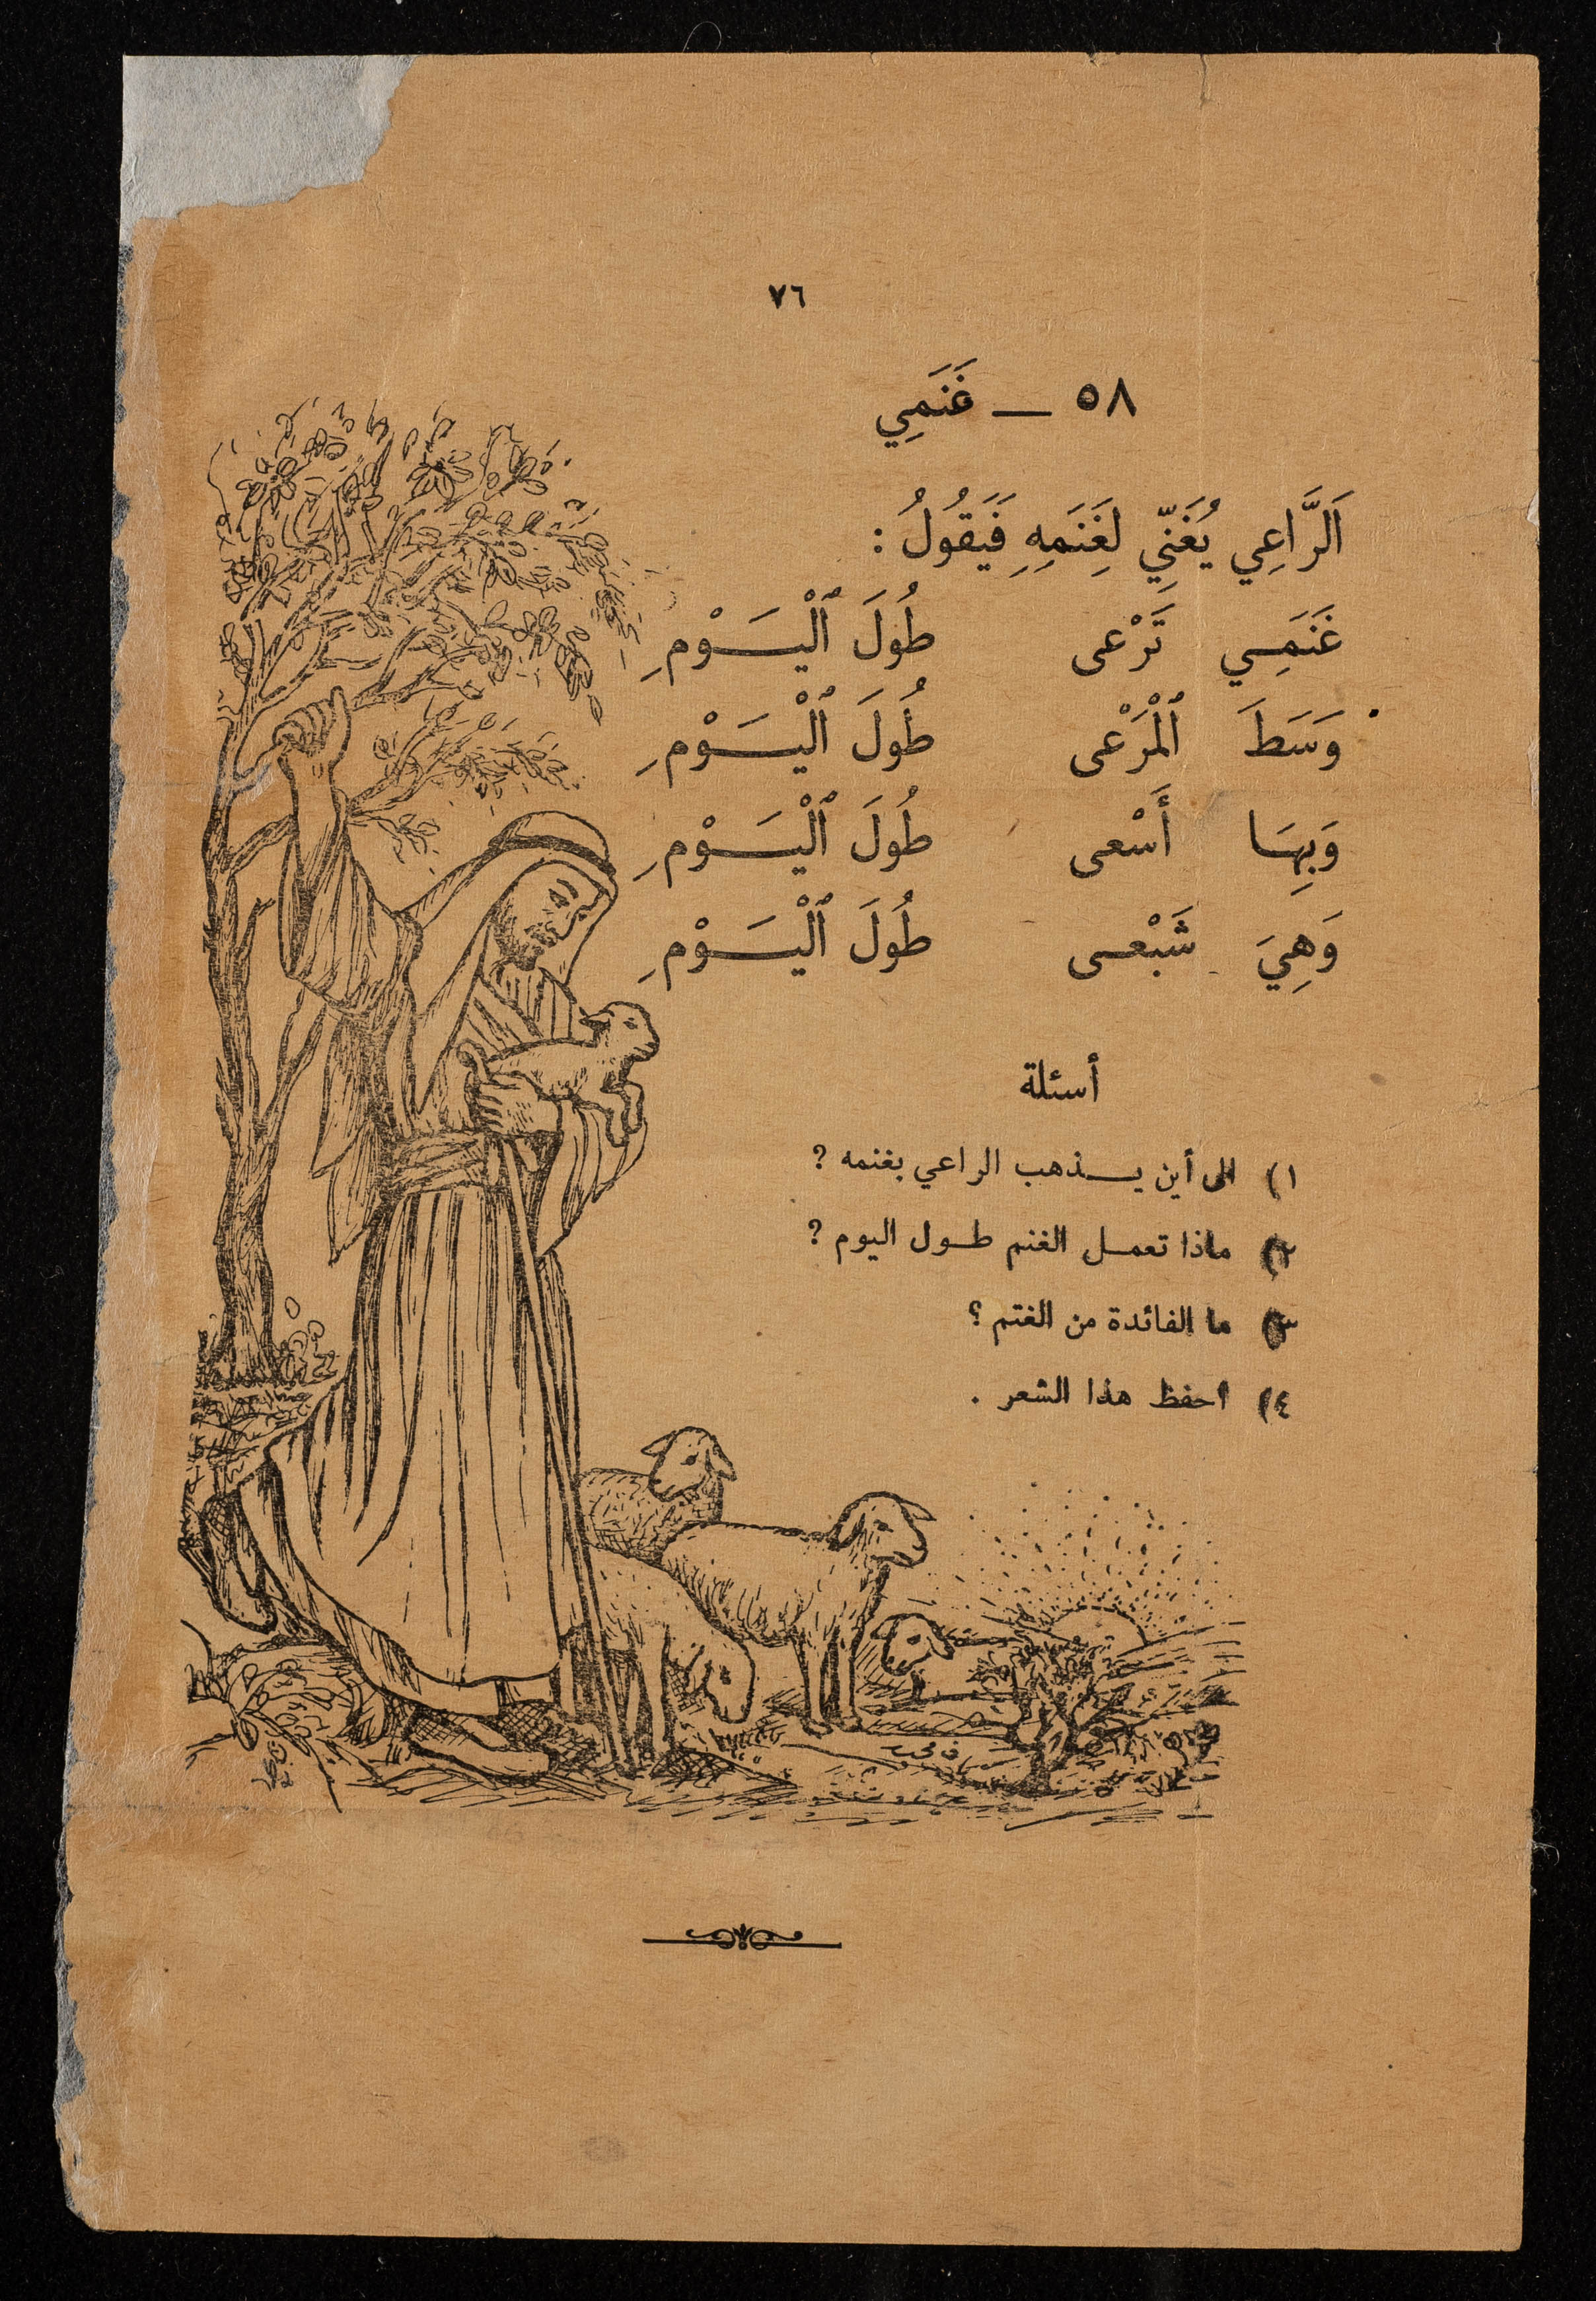 ٧٦
٥٨ — غَنَمِي
اَلرَّاعِي يُغَنِّي لِغَنَمِهِ فَيَقُولُ :
غَنَمِي تَرْعى طُولَ ٱلْيَوْمِ
وَسَطَ ٱلْمَرْعى طُولَ ٱلْيَوْمِ
وَبِهَا أَسْعى طُولَ ٱلْيَوْمِ
وَهِيَ شَبْعى طُولَ ٱلْيَوْمِ
أسئلة
١) الى أين يذهب الراعي بغنمه ؟
٢) ماذا تعمل الغنم طول اليوم ؟
٣) ما الفائدة من الغنم ؟
٤) احفظ هذا الشعر .